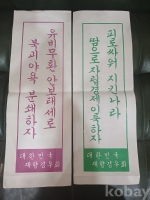 유비무환 안보태세로
북괴야욕 분쇄하자
대한민국
재향군인회
피로싸워 지킨나라
땀으로 자립경제 이룩하자
대한민국
재향군인회
kobay